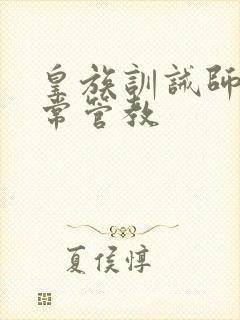 皇族訓誡師
常管教
夏侯惇